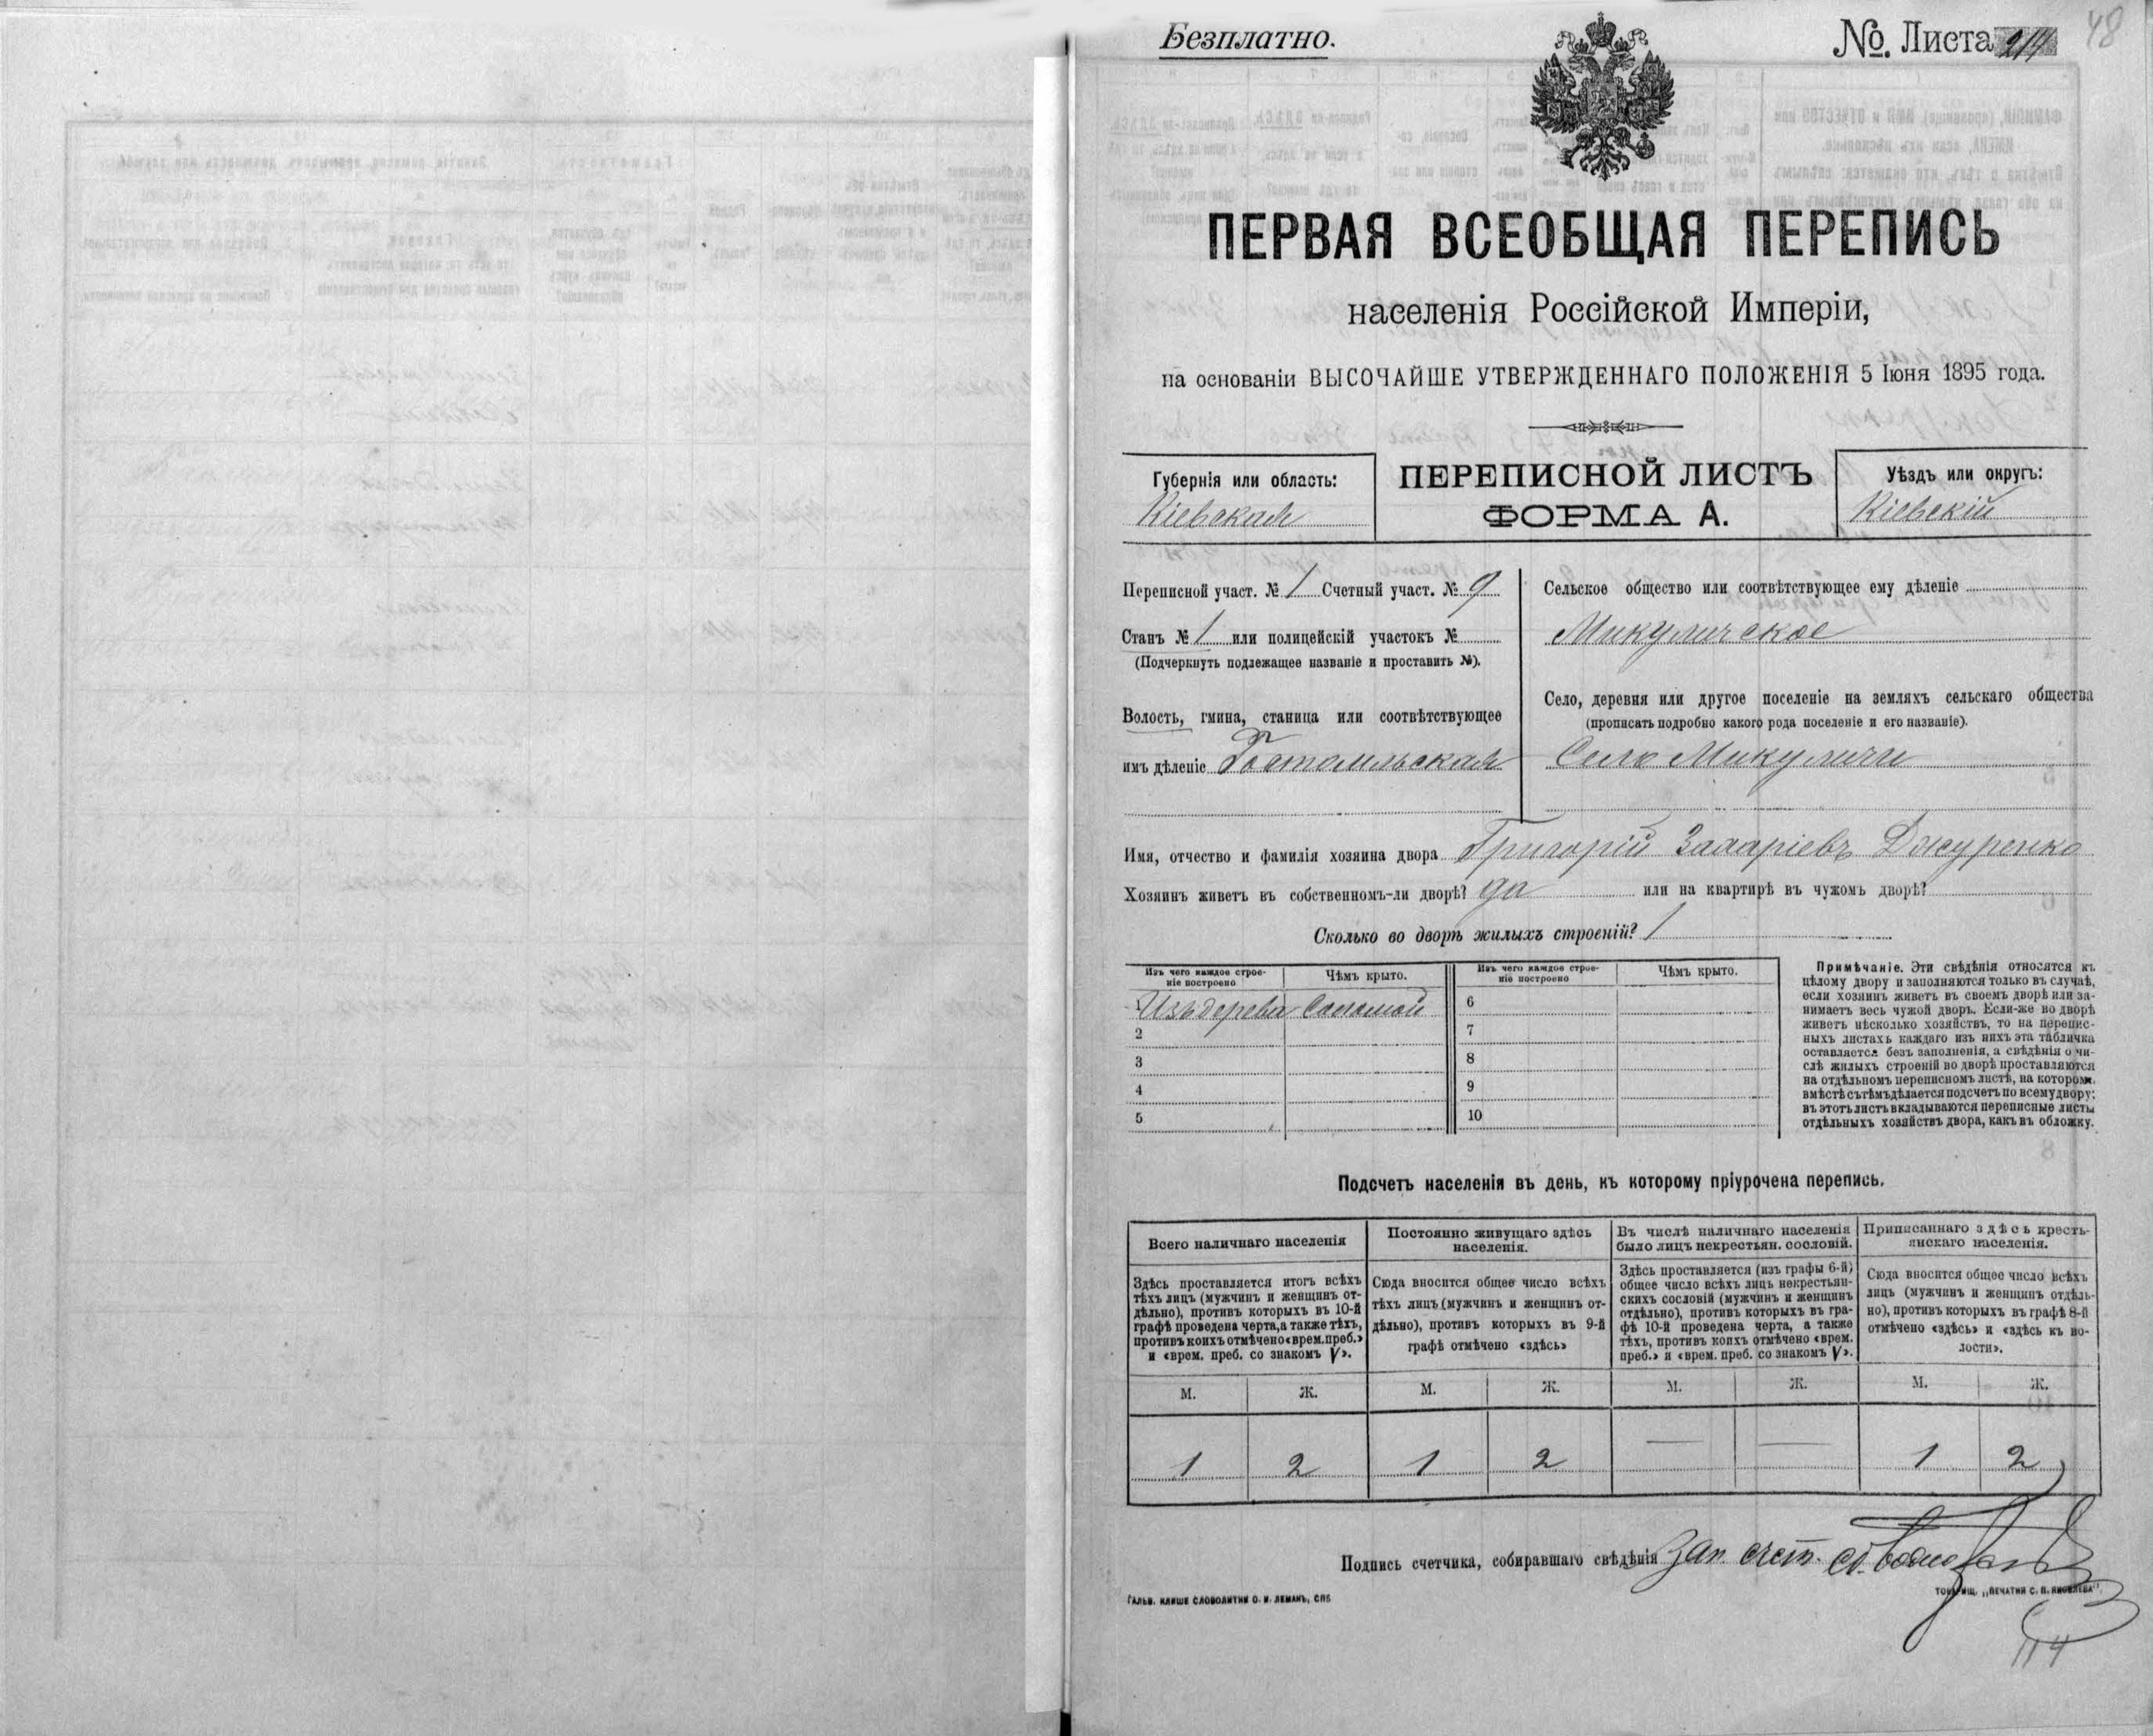 Безплатно.
№. Листа 214
48
ПЕРВАЯ ВСЕОБЩАЯ ПЕРЕПИСЬ
населенія Россійской Имперіи,
на основаніи ВЫСОЧАЙШЕ УТВЕРЖДЕННАГО ПОЛОЖЕНІЯ 5 Іюня 1895 года.
Губернія или область:
Кіевская
ПЕРЕПИСНОЙ ЛИСТЪ
ФОРМА А.
Уѣздъ или округъ:
Кіевскій
Переписной участ. № 1 Счетный участ. № 9
Станъ № 1 или полицейскій участокъ №
(Подчеркнуть подлежащее названіе и проставить №).
Волость, гмина, станица или соотвѣтствующее
имъ дѣленіе Гостомльская
Сельское общество или соотвѣтствующее ему дѣленіе
Микуличское
Село, деревня или другое поселеніе на земляхъ сельскаго общества
(прописать подробно какого рода поселеніе и его названіе).
Село Микуличи
Имя, отчество и фамилія хозяина двора Григорій Захаріевъ Джуренко
Хозяинъ живетъ въ собственномъ-ли дворѣ? да или на квартирѣ въ чужомъ дворѣ?
Сколько во дворѣ жилыхъ строеній? 1
Изъ чего каждое строе-
ніе построено
Чѣмъ крыто.
Изъ чего каждое строе-
ніе построено
Чѣмъ крыто.
1 Изъ дерева Соломой
2
3
4
5
6
7
8
9
10
Примѣчаніе. Эти свѣдѣнія относятся къ
цѣлому двору и заполняются только въ случаѣ,
если хозяинъ живетъ въ своемъ дворѣ или за-
нимаетъ весь чужой дворъ. Если-же во дворѣ
живетъ нѣсколько хозяйствъ, то на перепис-
ныхъ листахъ каждаго изъ нихъ эта табличка
оставляется безъ заполненія, а свѣдѣнія о чи-
слѣ жилыхъ строеній во дворѣ проставляются
на отдѣльномъ переписномъ листѣ, на которомъ
вмѣстѣ съ тѣмъ дѣлается подсчетъ по всему двору;
въ этотъ листъ вкладываются переписные листы
отдѣльныхъ хозяйствъ двора, какъ въ обложку.
Подсчетъ населенія въ день, къ которому пріурочена перепись.
Всего наличнаго населенія
Здѣсь проставляется итогъ всѣхъ
тѣхъ лицъ (мужчинъ и женщинъ от-
дѣльно), противъ которыхъ въ 10-й
графѣ проведена черта, а также тѣхъ,
противъ коихъ отмѣчено «врем. преб.»
и «врем. преб. со знакомъ V».
Постоянно живущаго здѣсь
населенія.
Сюда вносится общее число всѣхъ
тѣхъ лицъ (мужчинъ и женщинъ от-
дѣльно), противъ которыхъ въ 9-й
графѣ отмѣчено «здѣсь»
Въ числѣ наличнаго населенія
было лицъ некрестьян. сословій.
Здѣсь проставляется (изъ графы 6-й)
общее число всѣхъ лицъ некрестьян-
скихъ сословій (мужчинъ и женщинъ
отдѣльно), противъ которыхъ въ гра-
фѣ 10-й проведена черта, а также
тѣхъ, противъ коихъ отмѣчено «врем.
преб.» и «врем. преб. со знакомъ V».
Приписаннаго здѣсь кресть-
янскаго населенія.
Сюда вносится общее число всѣхъ
лицъ (мужчинъ и женщинъ отдѣль-
но), противъ которыхъ въ графѣ 8-й
отмѣчено «здѣсь» и «здѣсь къ во-
лости».
М. Ж. М. Ж. М. Ж. М. Ж.
1 2 1 2 — — 1 2
Подпись счетчика, собиравшаго свѣдѣнія Зап. счет.
ГАЛЬВ. КЛИШЕ СЛОВОЛИТНИ О. И. ЛЕМАНЪ, СПБ
ТОВАРИЩ. „ПЕЧАТНЯ С. П. ЯКОВЛЕВА".
114